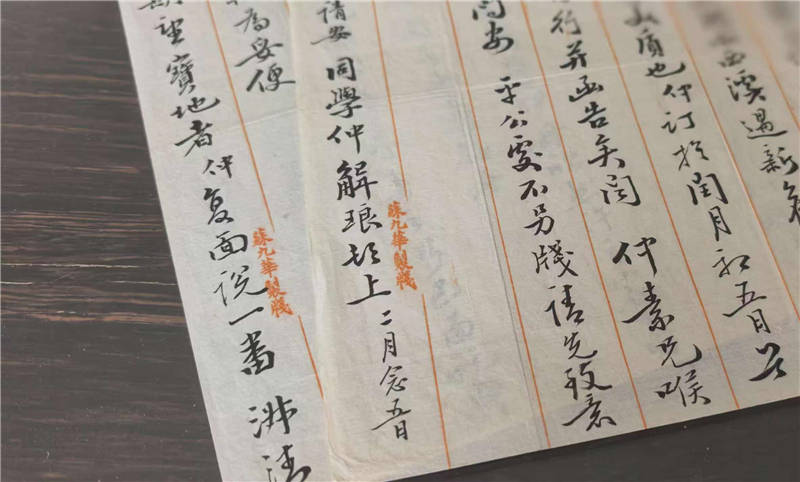 西溪遇新
質也仲訂於閏月初五日
行并函告矣閏 仲素兄喉
問安 平公處不另牋請先致意
請安 同學仲解琅頓上 二月念五日
蘇九華製牋
為妥便
寶地者仲复面說一番
蘇九華製牋